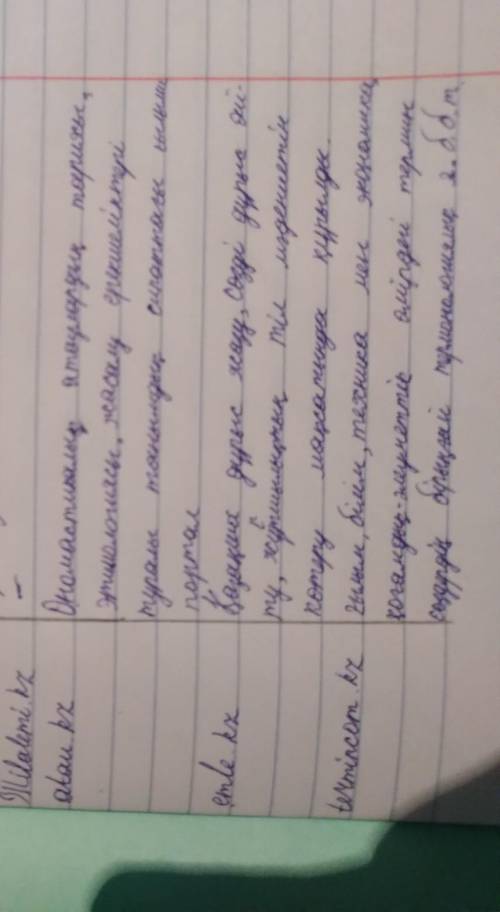 Tilalemi.kz -
atau.kz Ономастикалық атаулардың тарихы,
этимологиясы, жасалу ерекшеліктері
туралы танымдық сипаттағы ғылыми
портал
emle.kz Қазақша дұрыс жазу, сөзді дұрыс ай-
ту, жұршылықтың тіл мәдениетін
көтеру мақсатында құрылды.
termincom.kz Ғылым, білім, техника мен экономика,
қоғамдық-әлеуметтік өмірдегі термин
сөздердің бірыңғай терминологиялық